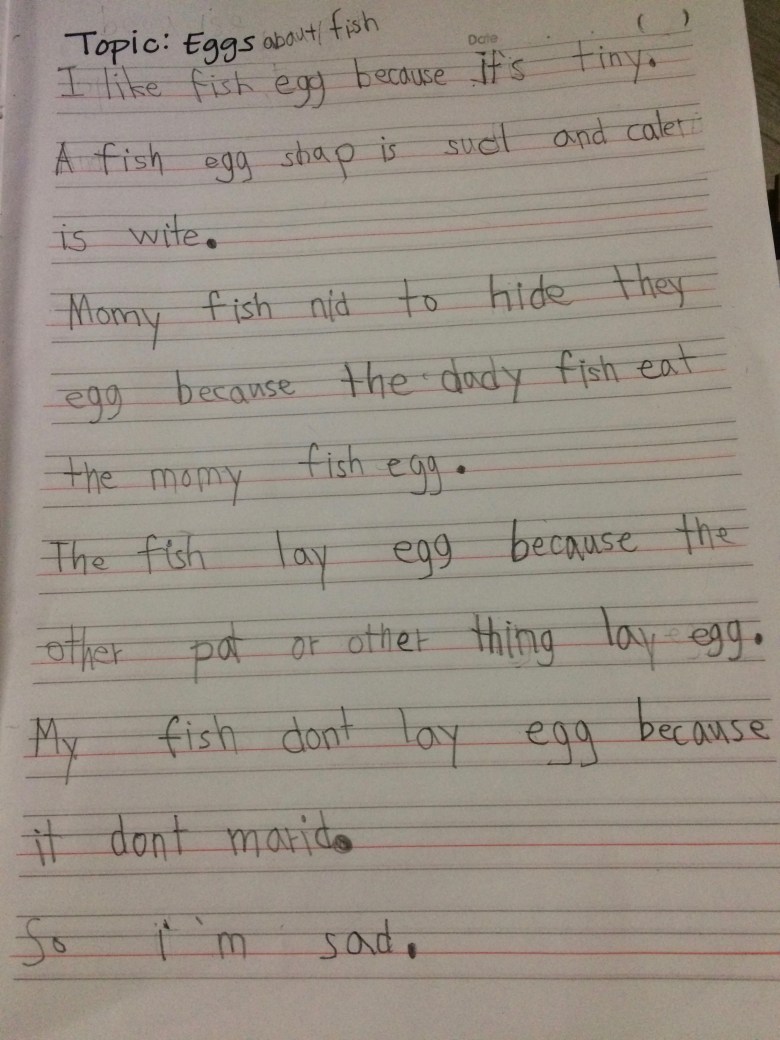 ( )
Topic: Eggs about/fish
Date
I like fish egg because it's tiny.
A fish egg shap is and caler
is wite.
Momy fish nid to hide they
egg because the dady fish eat
the momy fish egg.
The fish lay egg because the
other pat or other thing lay egg.
My fish dont lay egg because
it dont marid.
So i'm sad.